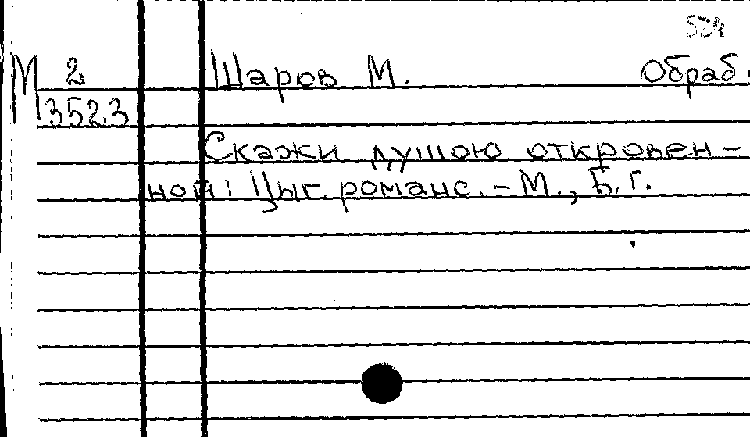 524
М 2 Шаров М. Обраб.
1352.3
Скажи душою откровен-
ной: Цыг. романс. - М., Б. г.